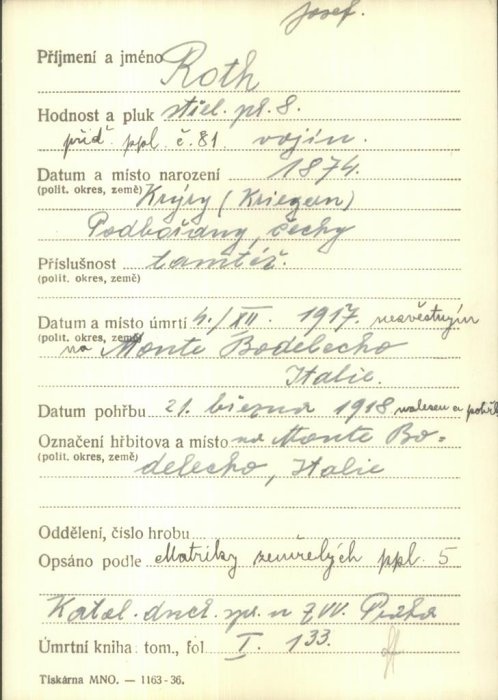 Josef.
Příjmení a jméno Roth
Hodnost a pluk střel. pl. 8.
příd. ppl. č. 81. vojín.
Datum a místo narození 1874.
(polit. okres, země) Krýry (Kriegern)
Podbořany, Čechy
Příslušnost tamtéž.
(polit. okres, země)
Datum a místo úmrtí 4./XII. 1917. nesvěstným
(polit. okres, země) na Monte Bodelecho
Italie.
Datum pohřbu 21. března 1918 nalezen a pohřb
Označení hřbitova a místo na Monte Bo-
(polit. okres, země) delecho, Italie
Oddělení, číslo hrobu
Opsáno podle Matriky zemřelých ppl. 5
Katol. duch. spr. n ZVV. Praha
Úmrtní kniha: tom., fol I. 133.
Tiskárna MNO. — 1163-36.